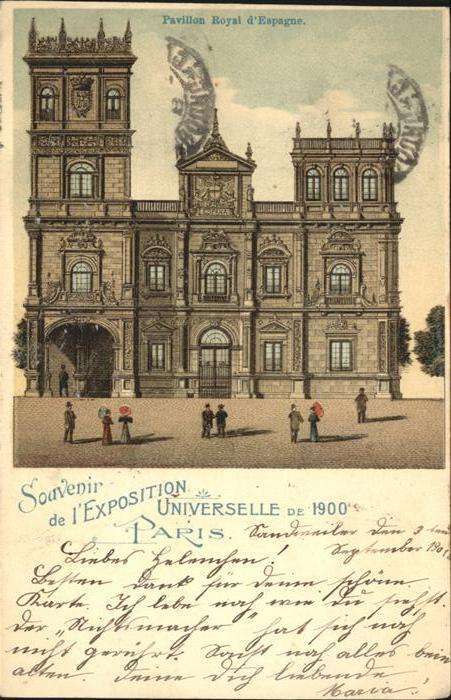 Pavillon Royal d'Espagne.
ESPAÑA
Souvenir
de l'EXPOSITION
UNIVERSELLE DE 1900
PARIS.
Sandweiler den 3 ten
September 190
Liebes Helenchen!
Besten Dank für deine schöne
Karte. Ich lebe noch wie du siehst.
Der "Nichtsmacher" hat sich noch
nicht gerührt. Sonst noch alles beim
alten. Deine dich liebende
Maria.